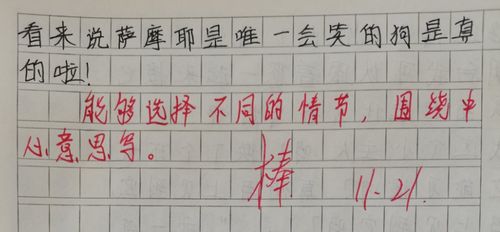 看来说萨摩耶是唯一会笑的狗是真
的啦！
能够选择不同的情节，围绕中
心意思写。
棒 11.21.